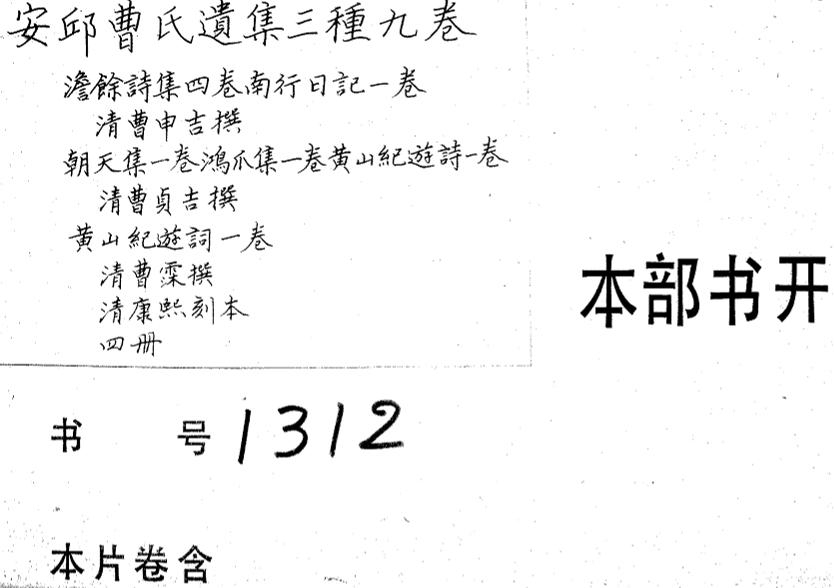 安邱曹氏遺集三種九卷
澹餘詩集四卷南行日記一卷
清曹申吉撰
朝天集一卷鴻爪集一卷黄山紀遊詩一卷
清曹貞吉撰
黄山紀遊詞一卷
清曹霂撰
清康熙刻本
四册
本部书开
书号1312
本片卷含